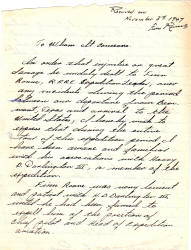 Received on
November 5th 1947
Finn Ronne
To Whom It Concerns
In order that injustice or great
damage be unduly dealt to Finn
Ronne, RARE Expedition Leader, over
any incidents during the period
between our departure from Beau-
mont, Texas and arrival to the
United States, I hereby wish to
express that during the entire
of the expedition period, I
have been aware and familiar
with his associations with Harry
D. Darlington III, a member of the
expedition.
Finn Ronne was very lenient
and patient with H.D. Darlington III
until he had been forced to
expell him of the position of
Chief pilot and Head of Expedition
aviation